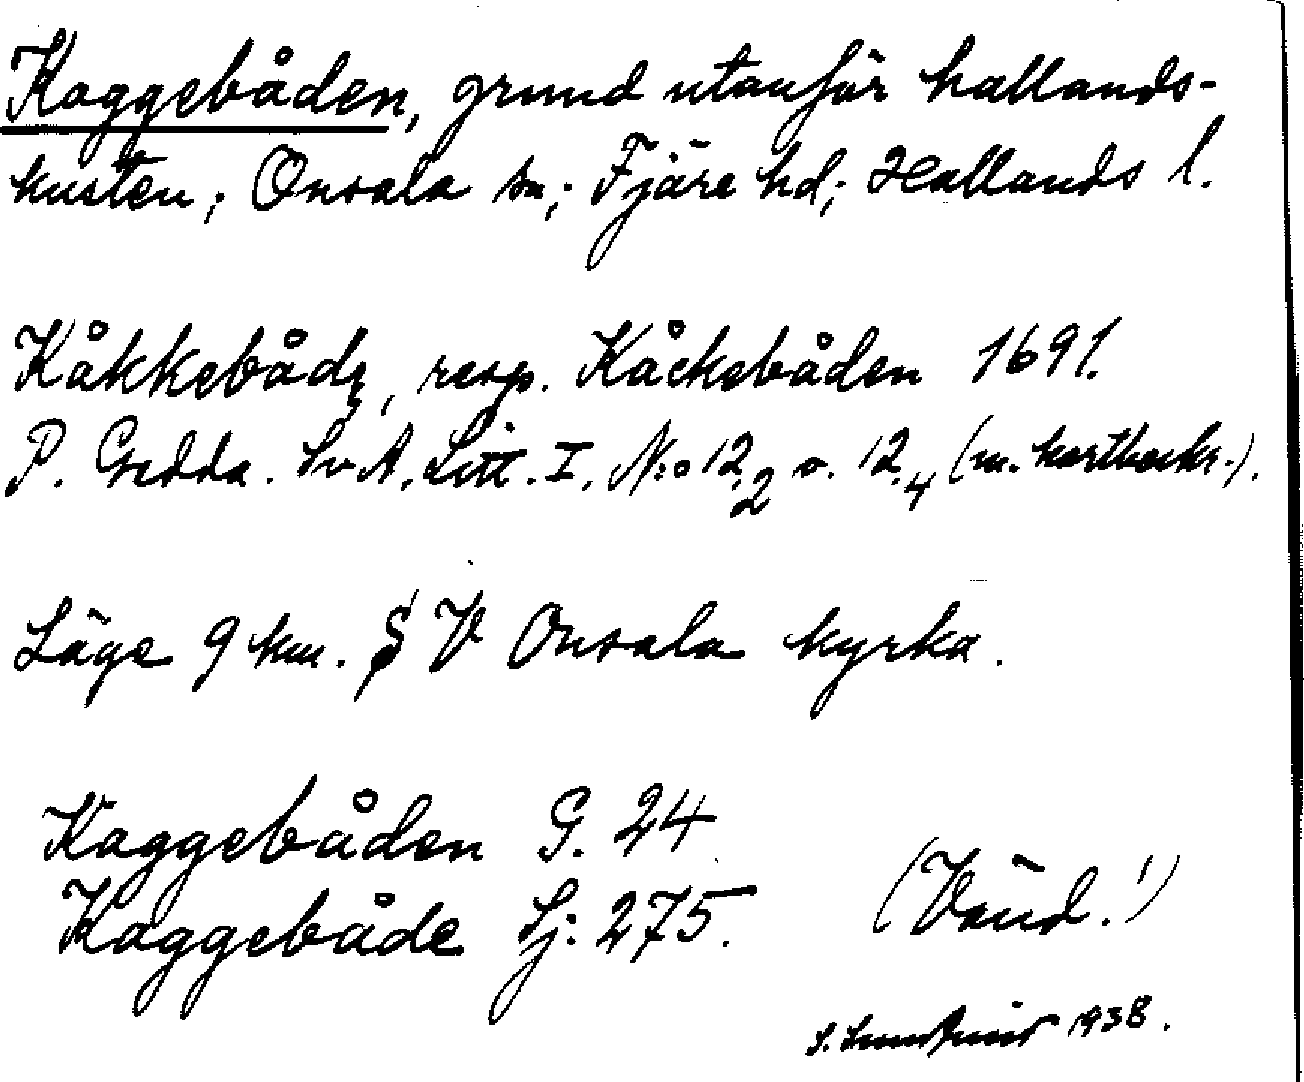 Kaggebåden, grund utanför hallands-
kusten; Onsala sn; Fjäre hd; Hallands l.
Kåkkebåde, resp. Kåckebåden 1691.
P. Gedda. Sv A. Litt. I. N:o 12.2 o. 12.4 (m. kartbeskr.).
Läge 9 km. S V Onsala kyrka.
Kaggebåden G. 24
Kaggebåde Sj: 275.
(Vänd!)
S. 1938.